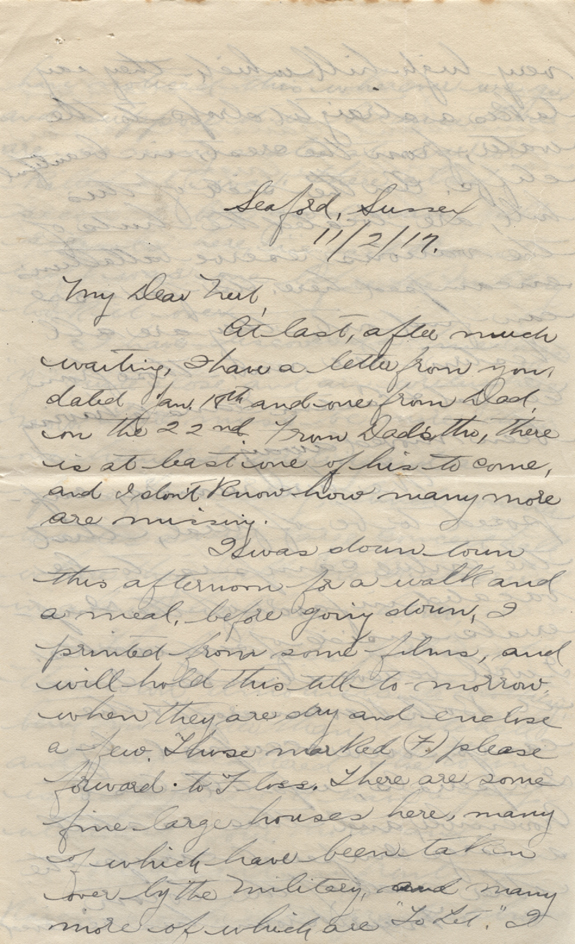 Seaford, Sussex
11/2/17.
My Dear Nert,
At last, after much
waiting, I have a letter from you,
dated Jan. 18th and one from Dad,
on the 22nd. From Dad's tho, there
is at least one of his to come,
and I don't know how many more
are missing.
I was down town
this afternoon for a walk and
a meal, before going down, I
printed from some films, and
will hold this till to-morrow,
when they are dry and enclose
a few. Those marked (F.) please
forward to Floss. There are some
fine large houses here, many
of which have been taken
over by the military, and many
more of which are "To Let." I